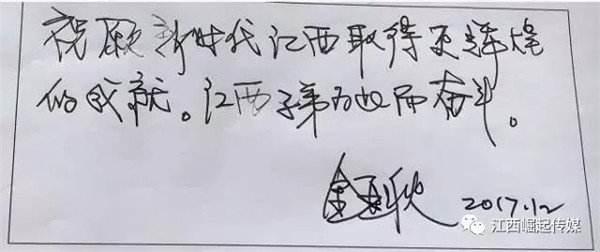 祝愿新时代江西取得更辉煌
的成就。江西子弟为此而奋斗。
2017.12
江西崛起传媒